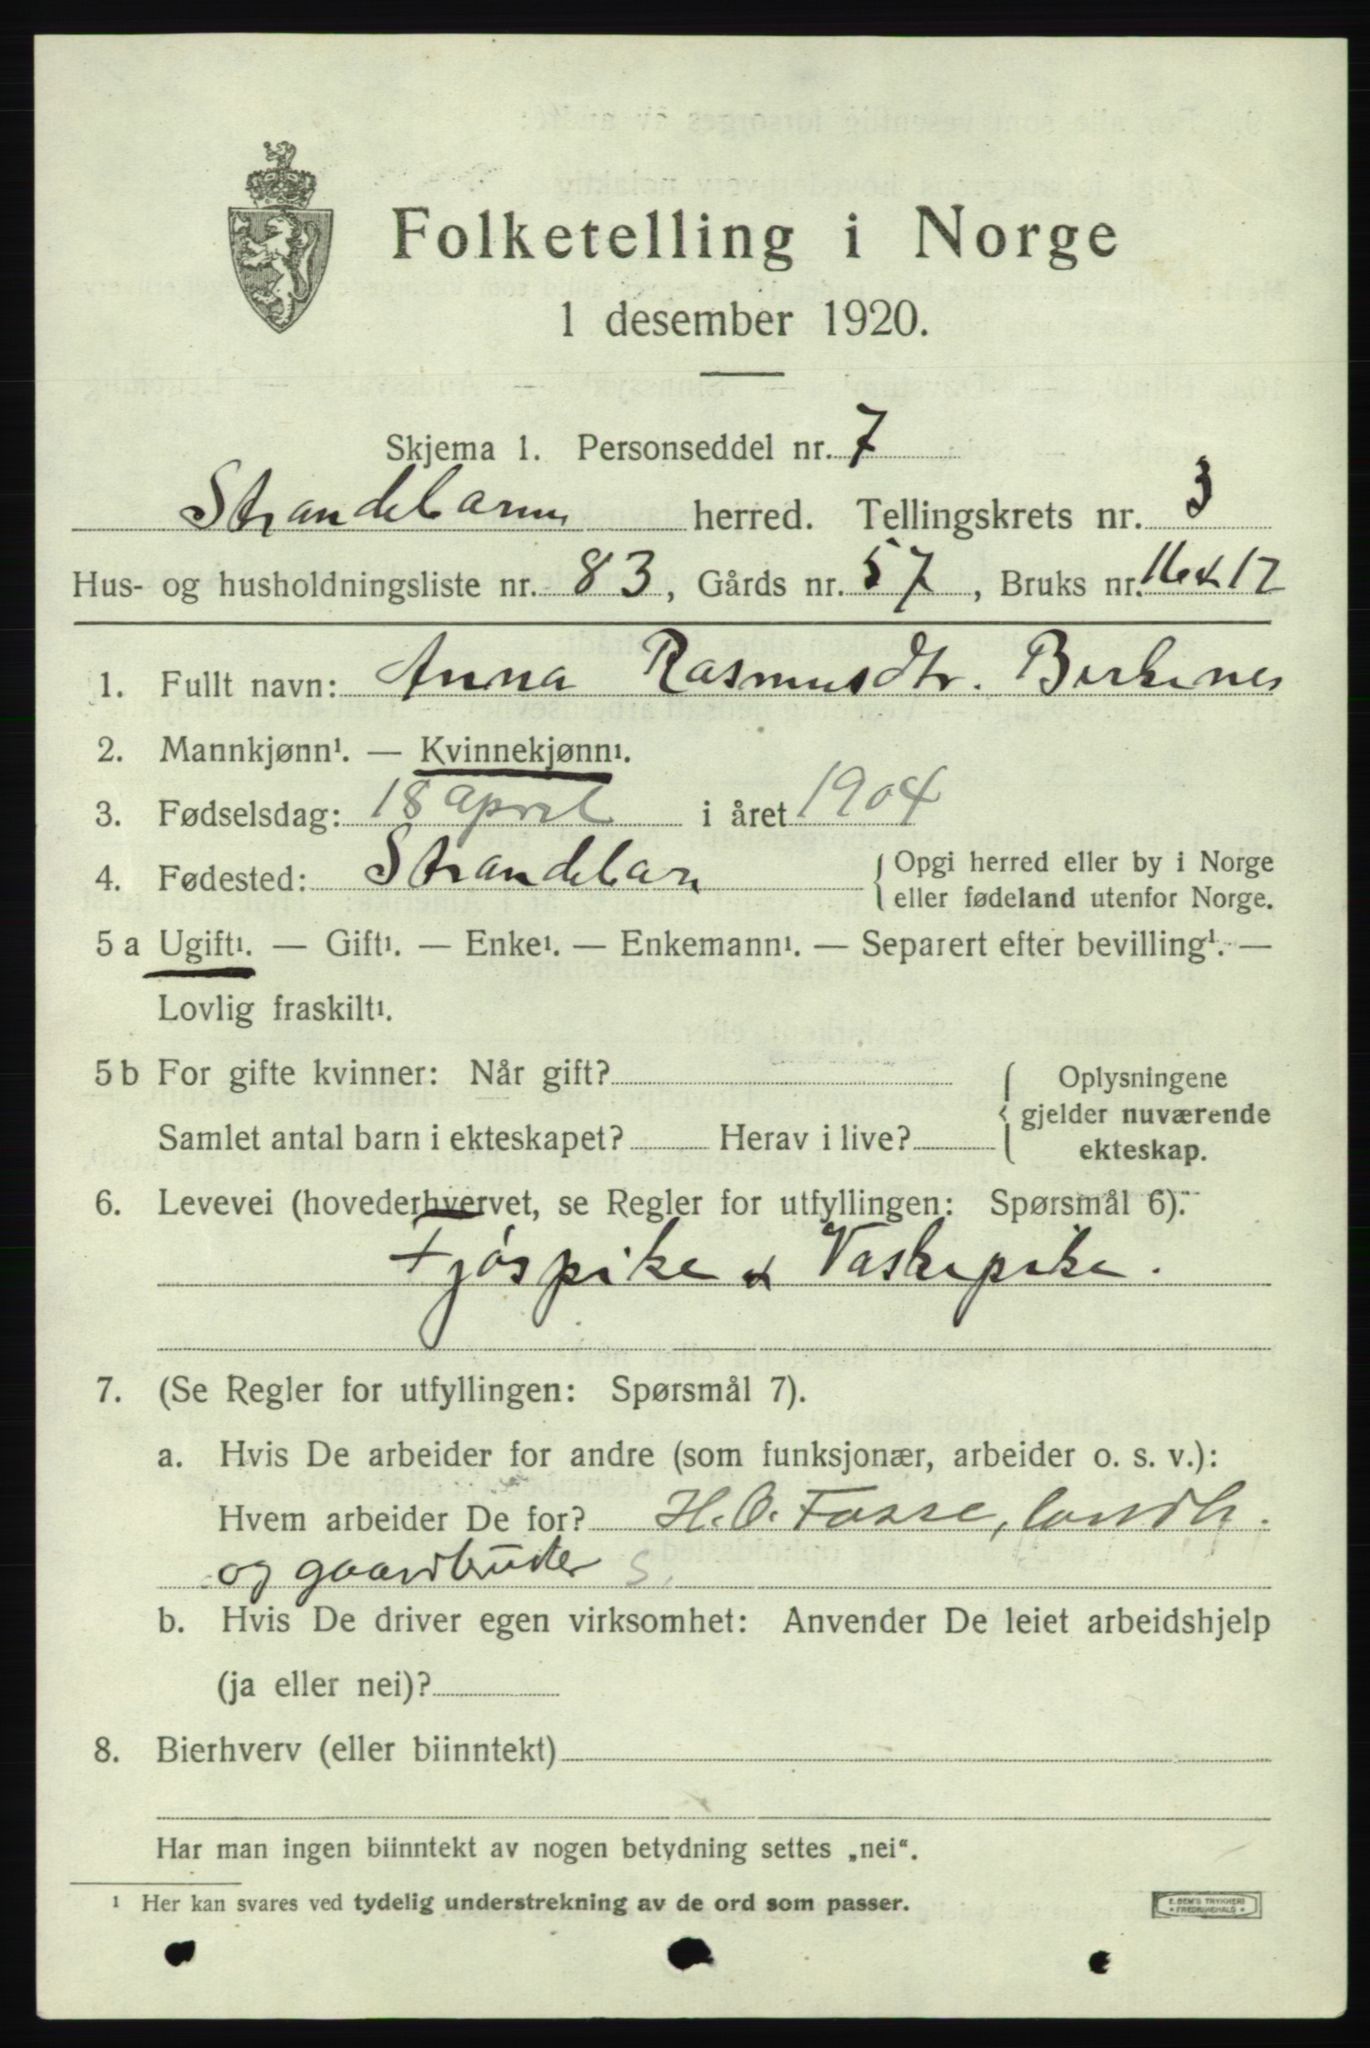 Folketelling i Norge
1 desember 1920.
Skjema 1. Personseddel nr. 7
Strandebarm herred. Tellingskrets nr. 3
Hus- og husholdningsliste nr. 83, Gårds nr. 57, Bruks nr. 16 & 17
1. Fullt navn: Anna Rasmusdtr. Berkenes
2. Mannkjønn¹. — Kvinnekjønn¹.
3. Fødselsdag: 18 april i året 1904
4. Fødested: Strandebarm { Opgi herred eller by i Norge
eller fødeland utenfor Norge.
5 a Ugift¹. — Gift¹. — Enke¹. — Enkemann¹. — Separert efter bevilling¹. —
Lovlig fraskilt¹.
5 b For gifte kvinner: Når gift? { Oplysningene
gjelder nuværende
Samlet antal barn i ekteskapet? Herav i live? ekteskap.
6. Levevei (hovederhvervet, se Regler for utfyllingen: Spørsmål 6).
Fjøspike & Vaskepike.
7. (Se Regler for utfyllingen: Spørsmål 7).
a. Hvis De arbeider for andre (som funksjonær, arbeider o. s. v.):
Hvem arbeider De for? H. O. Fosse, landh.
og gaardbruker S.
b. Hvis De driver egen virksomhet: Anvender De leiet arbeidshjelp
(ja eller nei)?
8. Bierhverv (eller biinntekt)
Har man ingen biinntekt av nogen betydning settes „nei“.
¹ Her kan svares ved tydelig understrekning av de ord som passer.
E. SEM'S TRYKKERI
* FREDRIKSHALD *